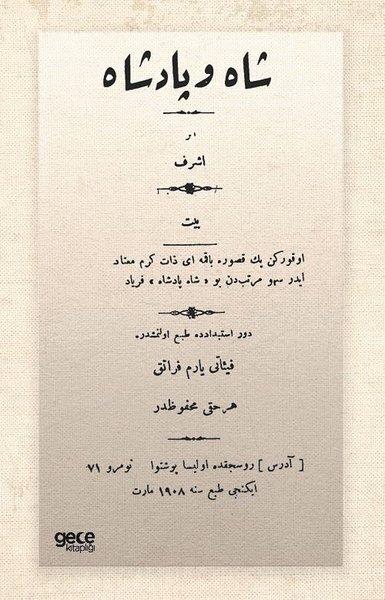 شاه و پادشاه
اثر
اشرف
بیت
اوقورکن پك قصوره باقمه ای ذات کرم معتاد
ایدر سهو مرتب‌دن بو « شاه پادشاه » فریاد
دور استبدادده طبع اولنمشدر.
فیثاتی یارم فرانق
هر حق محفوظدر
[ آدرس ] روسجقده اولیسا بوشنوا نومرو ٧١
ایکنجی طبع سنه ١٩٠٨ مارت
gece
kitaplığı